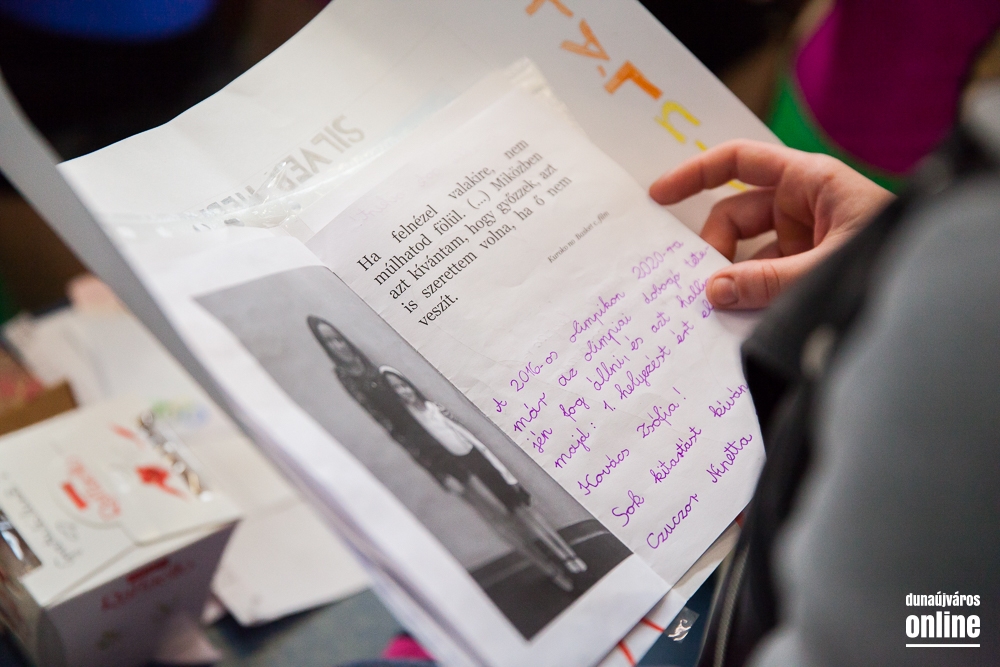 LÁLÚ
SILVER
Ha felnézel valakire, nem
múlhatod fölül. (...) Miközben
azt kívántam, hogy győzzek, azt
is szerettem volna, ha ő nem
veszít.
A 2016-os olimpikon 2020-ra
már az olimpiai dobogó tete-
jén fog állni, és azt
majd: 1. helyezést ért el
Kovács Zsófia!
Sok kitartást kíván
Czuczor Ninetta
Raffaello
dunaújváros
online